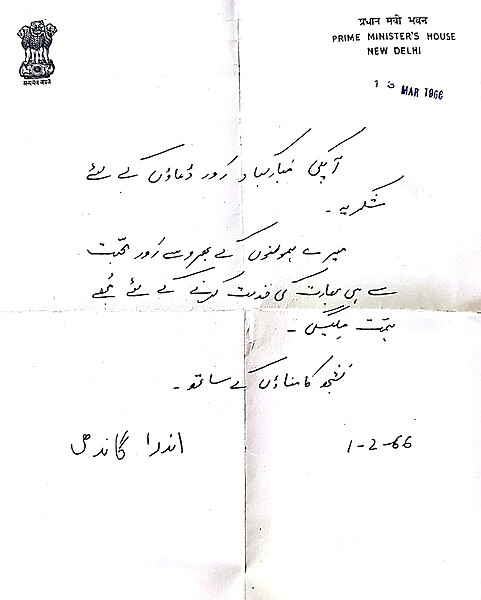 प्रधान मंत्री भवन
PRIME MINISTER'S HOUSE
NEW DELHI
सत्यमेव जयते
MAR 1966
آپکی مبارکباد اور دعاؤں کے لئے
شکریہ۔
میرے ہموطنوں کے بھروسے اور محبت
سے ہی بھارت کی خدمت کرنے کے لئے مجھے
ہمت ملیگی۔
شبھ کامناؤں کے ساتھ۔
اندرا گاندھی
1-2-66